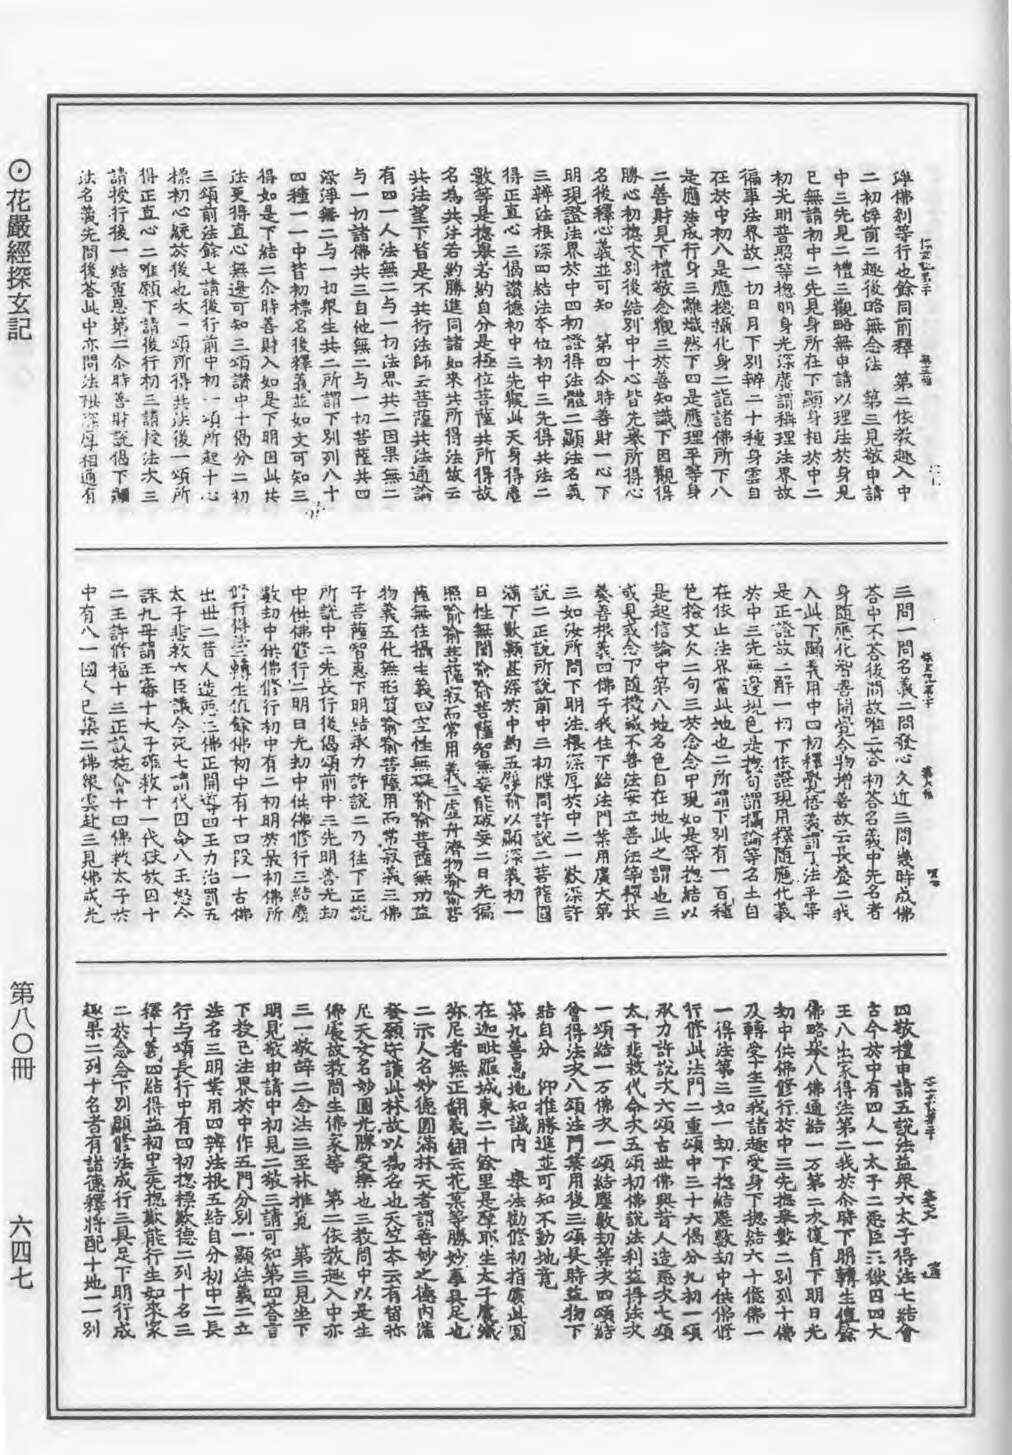 ⊙花嚴經探玄記
第八〇冊
六四七
殊佛刹等行也餘同前釋 第二依教趣入中
二初辞前二趣後略無念法 第三見敬申請
中三先見二禮三觀略無申請以理法於身見
已無請初中二先見身所在下顯身相於中二
初光明普照等揔明身光深廣謂稱理法界故
徧事法界故一切日月下別辨二十種身雲自
在於中初八是應揔攝化身二詣諸佛所下八
是應法成行身三離熾然下四是應理平等身
二善財見下禮敬念觀三於善知識下因觀得
勝心初揔次別後結別中十心皆先舉所得心
名後釋心義並可知 第四尒時善財一心下
明現證法界於中四初證得法體二顯法名義
三辨法根深四結法本位初中三先得共法二
得正直心三偈讚德初中三先獲此天身得塵
數等是揔舉若約自分是極位菩薩共所得故
名為共法若約勝進同諸如來共所得法故云
共法望下皆是不共行法師云菩薩共法通論
有四一人法無二与一切法界共二因果無二
与一切諸佛共三自他無二与一切菩薩共四
染淨無二与一切眾生共二所謂下別列八十
四種一一中皆初標名後釋義並如文可知三
得如是下結二尒時善財入如是下明因此共
法更得直心無邊可知三頌讚中十偈分二初
三頌前法餘七請後行前中初一頌所起十心
標初心統於後也次一頌所得共法後一頌所
得正直心二唯願下請後行初三請授法次三
請授行後一結重恩第二尒時善財說偈下顯
法名義先問後荅此中亦問法根深厚相通有
三問一問名義二問發心久近三問幾時成佛
荅中不荅後問故唯二荅初荅名義中先名者
身隨應化智善開覺令物增善故云長養二我
入此下顯義用中四初釋覺悟義謂了法平等
是正證故二解一切下依證現用釋隨應化義
於中三先無邊現色是揔句謂攝論等名土自
在依止法界當此地也二所謂下別有一百種
色撿文欠二句三於念念中現如是等揔結以
是起信論中第八地名色自在地此之謂也三
或見或念下隨機滅不善法安立善法等釋長
養善根義四佛子我住下結法門業用廣大第
三如汝所問下明法根深厚於中二一歎深許
說二正說所說前中三初牒問許說二菩薩圓
滿下歎顯甚深於中約五譬喻以顯深義初一
日性無闇喻喻菩薩智無妄能破妄二日光徧
照喻喻共薩寂而常用義三虛舟濟物喻喻菩
薩無住攝生義四空性無礙喻喻菩薩無功益
物義五化無形質喻喻菩薩用而常寂義三佛
子菩薩智惠下明結承力許說二乃往下正說
所說中二先長行後偈頌前中三先明善光劫
中供佛修行二明日光劫中供佛修行三結塵
數劫中供佛修行初中有二初明於最初佛所
修行得法二轉生值餘佛初中有十四段一古佛
出世二昔人造惡三佛正開導四王力治罰五
太子悲救六臣議令死七請代囚命八王怒令
誅九母請王審十太子確救十一代獄放囚十
二王許修福十三正設施會十四佛教太子於
中有八一國人已集二佛眾雲赴三見佛成光
四敬禮申請五說法益眾六太子得法七結會
古今於中有四人一太子二惡臣三獄囚四大
王八出家得法第二我於尒時下明轉生值餘
佛略舉八佛通結一万第二次復有下明日光
劫中供佛修行於中三先揔舉數二別列十佛
及轉受生三我諸趣受身下揔結六十億佛一
一得法第三如一劫下揔結塵數劫中供佛修
行修此法門二重頌中三十六偈分九初一頌
承力許說次六頌古世佛興昔人造惡次七頌
太子悲救代命次五頌初佛說法利益得法次
一頌結一万佛次一頌結塵數劫業次四頌結
會得法次八頌法門業用後三頌長時益物下
結自分 仰推勝進並可知不動地竟
第九善恵地知識內 舉法勸修初指處此園
在迦毗羅城東二十餘里是摩耶生太子處嵐
弥尼者無正翻義翻云花菓等勝妙事具足也
二示人名妙德圓滿林天者謂善妙之德內滿
發願守護此林故以為名也天竺本云有嵐弥
尼天女名妙圓光勝愛樂也三教問中以是生
佛處故教問生佛家等 第二依教趣入中亦
三一敬辭二念法三至林推覓 第三見坐下
明見敬申請中初見二敬三請可知第四荅言
下授已法界於中作五門分別一顯法義二立
法名三明業用四辨法根五結自分初中二長
行与頌長行中有四初揔標歎德二列十名三
釋十義四結得益初中三先揔歎能行生如來家
二於念念下別顯修法成行三具足下明行成
趣果二列十名者有諸德釋將配十地一一別